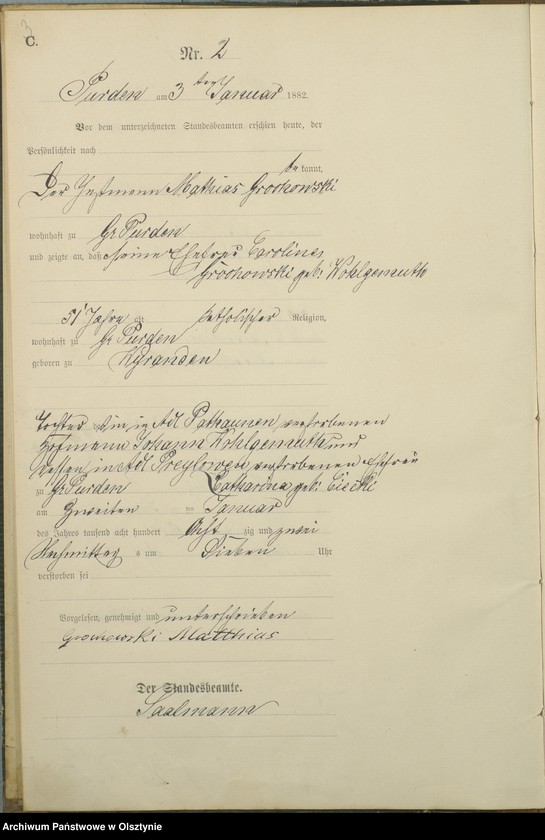 3
C.
Nr. 2
Purden am 3ten Januar 1882.
Vor dem unterzeichneten Standesbeamten erschien heute, der
Persönlichkeit nach
be kannt,
Der Instmann Mathias Grochowski
wohnhaft zu Gr Purden
und zeigte an, daß seine Ehefrau Caroline
Grochowski geb: Wohlgemuth
51 Jahre alt katholischer Religion,
wohnhaft zu Gr Purden
geboren zu
Tochter des in Adl Pathaunen verstorbenen
Hofmann Johann Wohlgemuth und
dessen in Adl Preylowen verstorbenen Ehefrau
Catharina geb: Ciecki
zu Gr Purden
am zweiten ten Januar
des Jahres tausend acht hundert Acht zig und zwei
Nachmittag s um Sieben Uhr
verstorben sei
Vorgelesen, genehmigt und unterschrieben
Grochowski Matthias
Der Standesbeamte.
Saalmann
Archiwum Państwowe w Olsztynie